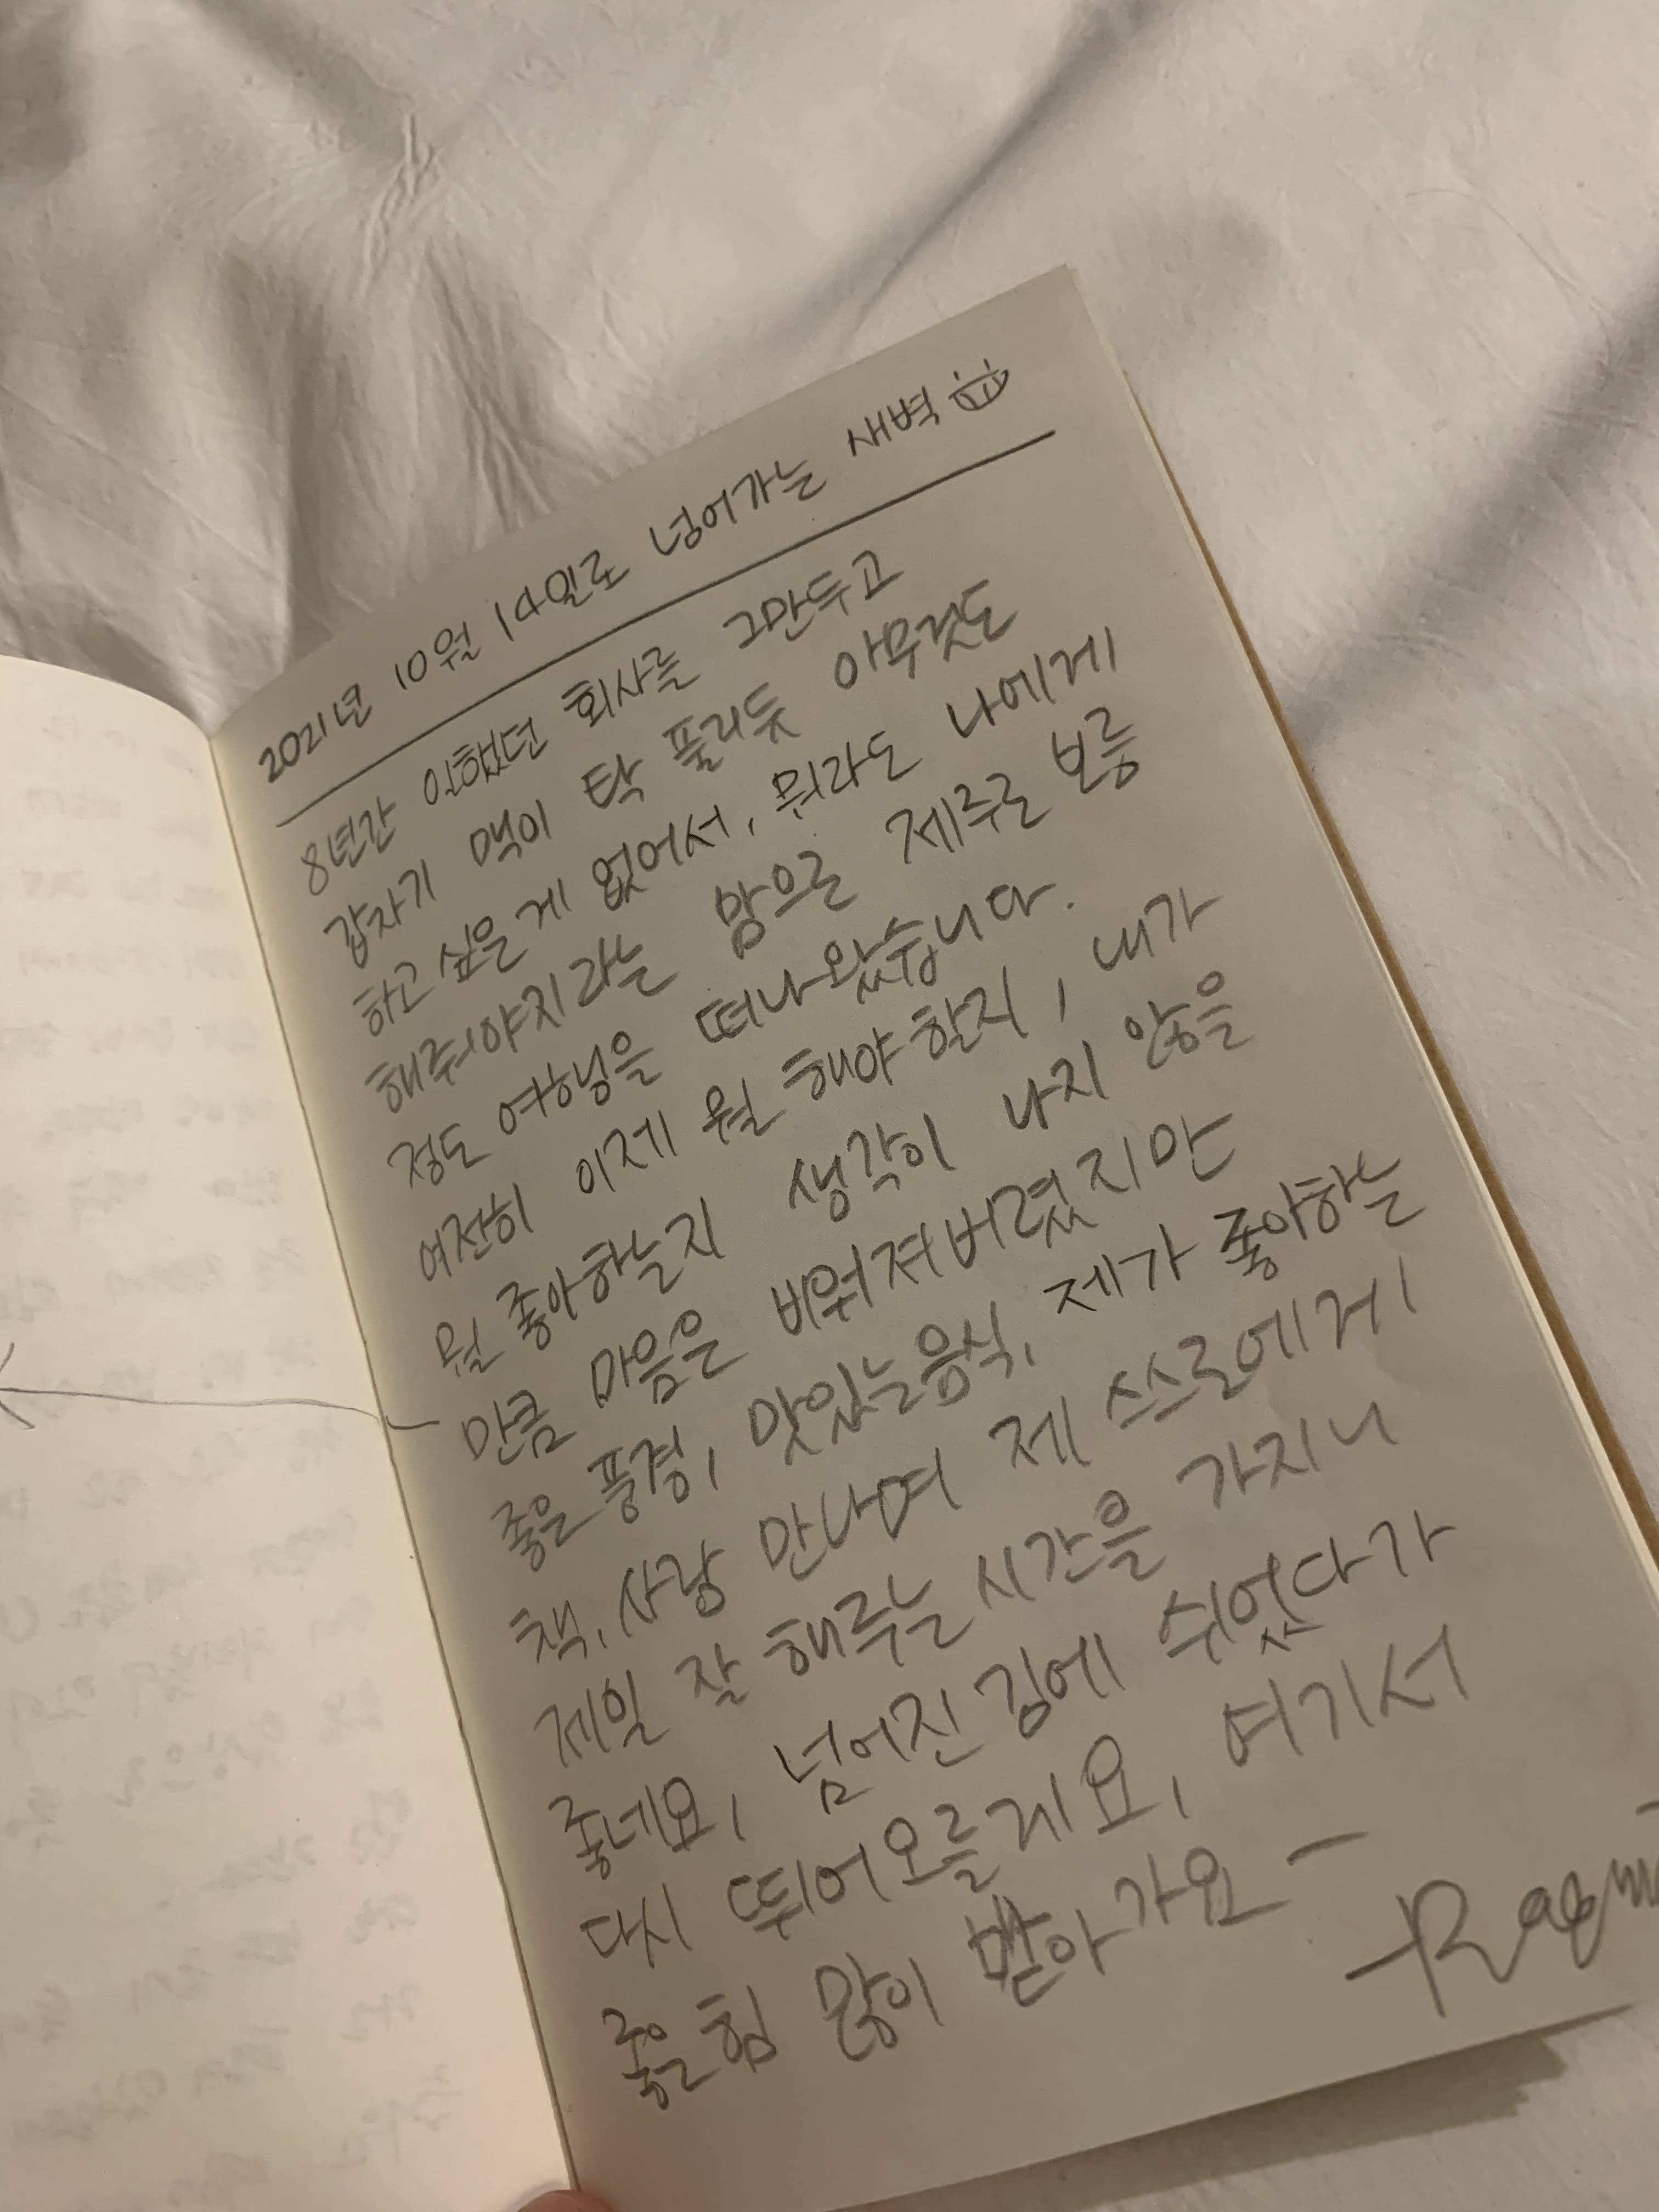 2021년 10월 14일로 넘어가는 새벽
8년간 일했던 회사를 그만두고
갑자기 맥이 탁 풀리듯 아무것도
하고 싶은 게 없어서, 뭐라도 나에게
해줘야지라는 맘으로 제주로 보름
정도 여행을 떠나왔습니다.
여전히 이제 뭘 해야 할지, 내가
뭘 좋아하는지 생각이 나지 않을
만큼 마음은 비워져버렸지만
좋은 풍경, 맛있는 음식, 제가 좋아하는
책, 사람 만나며 제 스스로에게
제일 잘 해주는 시간을 가지니
좋네요, 넘어진 김에 쉬었다가
다시 뛰어오를게요, 여기서
좋은 힘 많이 받아가요 –